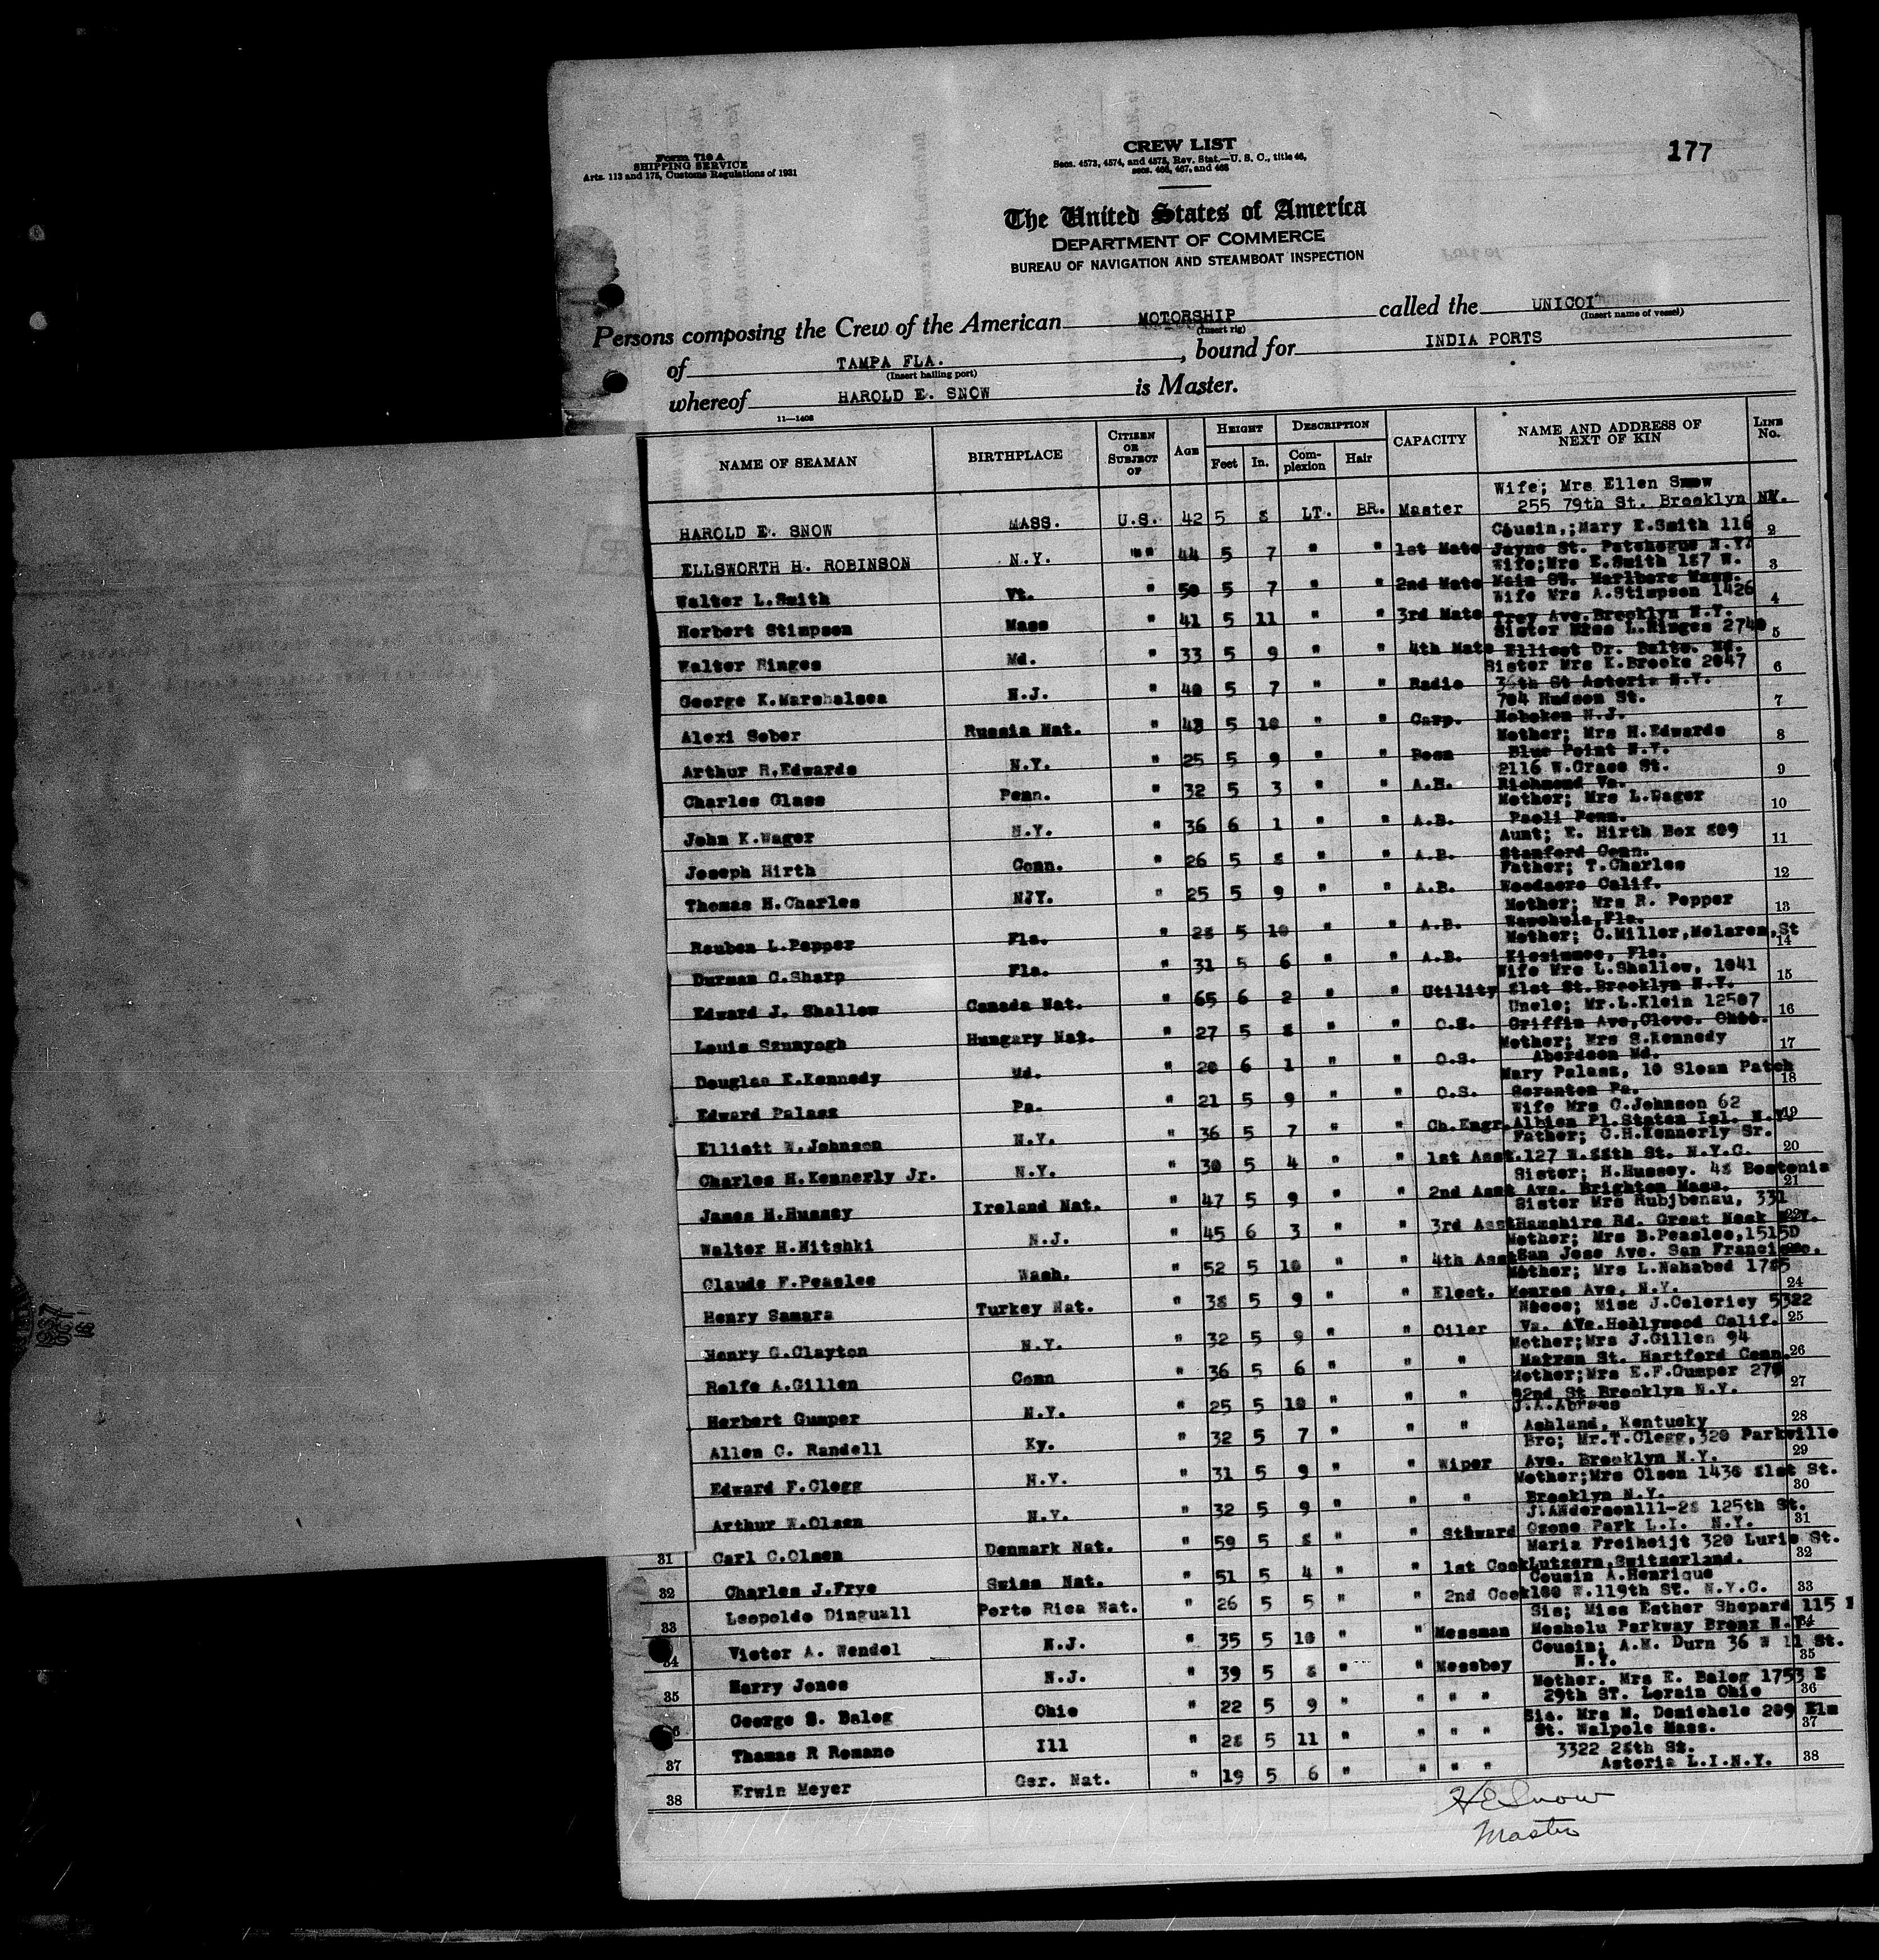 Form 710 A
SHIPPING SERVICE
Arts. 113 and 175, Customs Regulations of 1931
CREW LIST
Secs. 4573, 4574, and 4575, Rev. Stat.—U. S. C., title 46,
secs. 465, 467, and 468
177
The United States of America
DEPARTMENT OF COMMERCE
BUREAU OF NAVIGATION AND STEAMBOAT INSPECTION
Persons composing the Crew of the American MOTORSHIP called the UNICOI
(Insert rig) (Insert name of vessel)
of TAMPA FLA. , bound for INDIA PORTS
(Insert hailing port)
whereof HAROLD E. SNOW is Master.
11—1408
NAME OF SEAMAN BIRTHPLACE CITIZEN OR SUBJECT OF AGE HEIGHT Feet In. DESCRIPTION Complexion Hair CAPACITY NAME AND ADDRESS OF NEXT OF KIN LINE No.
HAROLD E. SNOW MASS. U.S. 42 5 8 LT. BR. Master Wife; Mrs Ellen Snow
255 79th St. Brooklyn NY.
ELLSWORTH H. ROBINSON N.Y. "" 44 5 7 " " 1st Mate Cousin,;Mary E.Smith 116 2
Jayne St. Patchogue N.Y.
Walter L.Smith Vt. " 50 5 7 " " 2nd Mate Wife;Mrs E.Smith 187 W. 3
Main St. Marlboro Mass.
Herbert Stimpson Mass " 41 5 11 " " 3rd Mate Wife Mrs A.Stimpson 1426 4
Troy Ave.Brooklyn N.Y.
Walter Ringes Md. " 33 5 9 " " 4th Mate Sister Miss L.Ringes 2740 5
Elliott Dr. Balto. Md.
George K.Marshalsea N.J. " 40 5 7 " " Radio Sister Mrs K.Brooke 2047 6
36th St Astoria N.Y.
Alexi Sober Russia Nat. " 43 5 10 " " Carp. 704 Hudson St. 7
Hoboken N.J.
Arthur R.Edwards N.Y. " 25 5 9 " " Bosn Mother; Mrs H.Edwards 8
Blue Point N.Y.
Charles Glass Penn. " 32 5 3 " " A.B. 2116 W.Grace St. 9
Richmond Va.
John K.Wager N.Y. " 36 6 1 " " A.B. Mother; Mrs L.Wager 10
Paoli Penn.
Joseph Hirth Conn. " 26 5 8 " " A.B. Aunt; E. Hirth Box 809 11
Stamford Conn.
Thomas H.Charles N.Y. " 25 5 9 " " A.B. Father; T.Charles 12
Woodacre Calif.
Reuben L.Pepper Fla. " 28 5 10 " " A.B. Mother; Mrs R. Pepper 13
Wauchula,Fla.
Durman C.Sharp Fla. " 31 5 6 " " A.B. Mother; C.Miller,Melaren,St 14
Kissimmee, Fla.
Edward J. Shallow Canada Nat. " 65 6 2 " " Utility Wife Mrs L.Shallow, 1041 15
81st St.Brooklyn N.Y.
Louis Szunyogh Hungary Nat. " 27 5 8 " " O.S. Uncle; Mr.L.Klein 12507 16
Griffin Ave,Cleve. Ohio.
Douglas K.Kennedy Md. " 20 6 1 " " O.S. Mother; Mrs S.Kennedy 17
Aberdeen Md.
Edward Palasz Pa. " 21 5 9 " " O.S. Mary Palasz, 10 Sloan Patch 18
Scranton Pa.
Elliott W.Johnson N.Y. " 36 5 7 " " Ch.Engr. Wife Mrs C.Johnson 62 19
Albion Pl.Staten Isl. N.Y.
Charles H.Kennerly Jr. N.Y. " 30 5 4 " " 1st Asst. Father; C.H.Kennerly Sr. 20
127 W.88th St. N.Y.C.
James H.Hussey Ireland Nat. " 47 5 9 " " 2nd Asst Sister; H.Hussey. 48 Bostonia 21
Ave. Brighton Mass.
Walter H.Nitshki N.J. " 45 6 3 " " 3rd Asst Sister Mrs Rubjbenau, 331 22
Hamshire Rd. Great Neck N.Y.
Claude F.Peaslee Wash. " 52 5 10 " " 4th Asst Mother; Mrs B.Peaslee,1515D
San Jose Ave. San Francisco.
Henry Samara Turkey Nat. " 38 5 9 " " Elect. Mother; Mrs L.Nahabed 1785 24
Monroe Ave, N.Y.
Henry G.Clayton N.Y. " 32 5 9 " " Oiler Neece; Miss J.Celericy 5322 25
Va. AVe.Hollywood Calif.
Rolfe A.Gillen Conn " 36 5 6 " " " Mother;Mrs J.Gillen 94 26
St. Hartford Conn.
Herbert Gumper N.Y. " 25 5 10 " " " Mother;Mrs E.F.Gumper 270 27
82nd St Brooklyn N.Y.
Allen C. Randell Ky. " 32 5 7 " " " J.A.Abrams 28
Ashland, Kentucky
Edward F.Clegg N.Y. " 31 5 9 " " Wiper Bro; Mr.T.Clegg,320 Parkville 29
Ave. Brooklyn N.Y.
Arthur W.Olsen N.Y. " 32 5 9 " " " Mother;Mrs Olsen 1436 81st St. 30
Brooklyn N.Y.
31 Carl C.Olsen Denmark Nat. " 59 5 8 " " Steward J.Anderson111-28 125th St. 31
Ozone Park L.I. N.Y.
32 Charles J.Frye Swiss Nat. " 51 5 4 " " 1st Cook Maria Freiheijt 320 Luris St. 32
Lutzern,Switzerland.
33 Leopoldo Dinguall Porto Rica Nat. " 26 5 5 " " 2nd Cook Cousin A.Henrique 33
100 W.119th St. N.Y.C.
34 Victor A. Wendel N.J. " 35 5 10 " " Messman Sis; Miss Esther Shepard 115 34
Mosholu Parkway Bronx N.Y.
35 Harry Jones N.J. " 39 5 8 " " Messboy Cousin; A.M. Durn 36 W 11 St. 35
N.Y.
36 George S. Balog Ohio " 22 5 9 " " " " Mother. Mrs E. Balog 1753 E 36
29th ST. Lorain Ohio
37 Thamas R Romano Ill " 28 5 11 " " " " Sis. Mrs M. Demichele 209 Elm 37
St. Walpole Mass.
38 Erwin Meyer Ger. Nat. " 19 5 6 " " " " 3322 28th St. 38
Astoria L.I.N.Y.
H E Snow
Master
1937 OCT 18